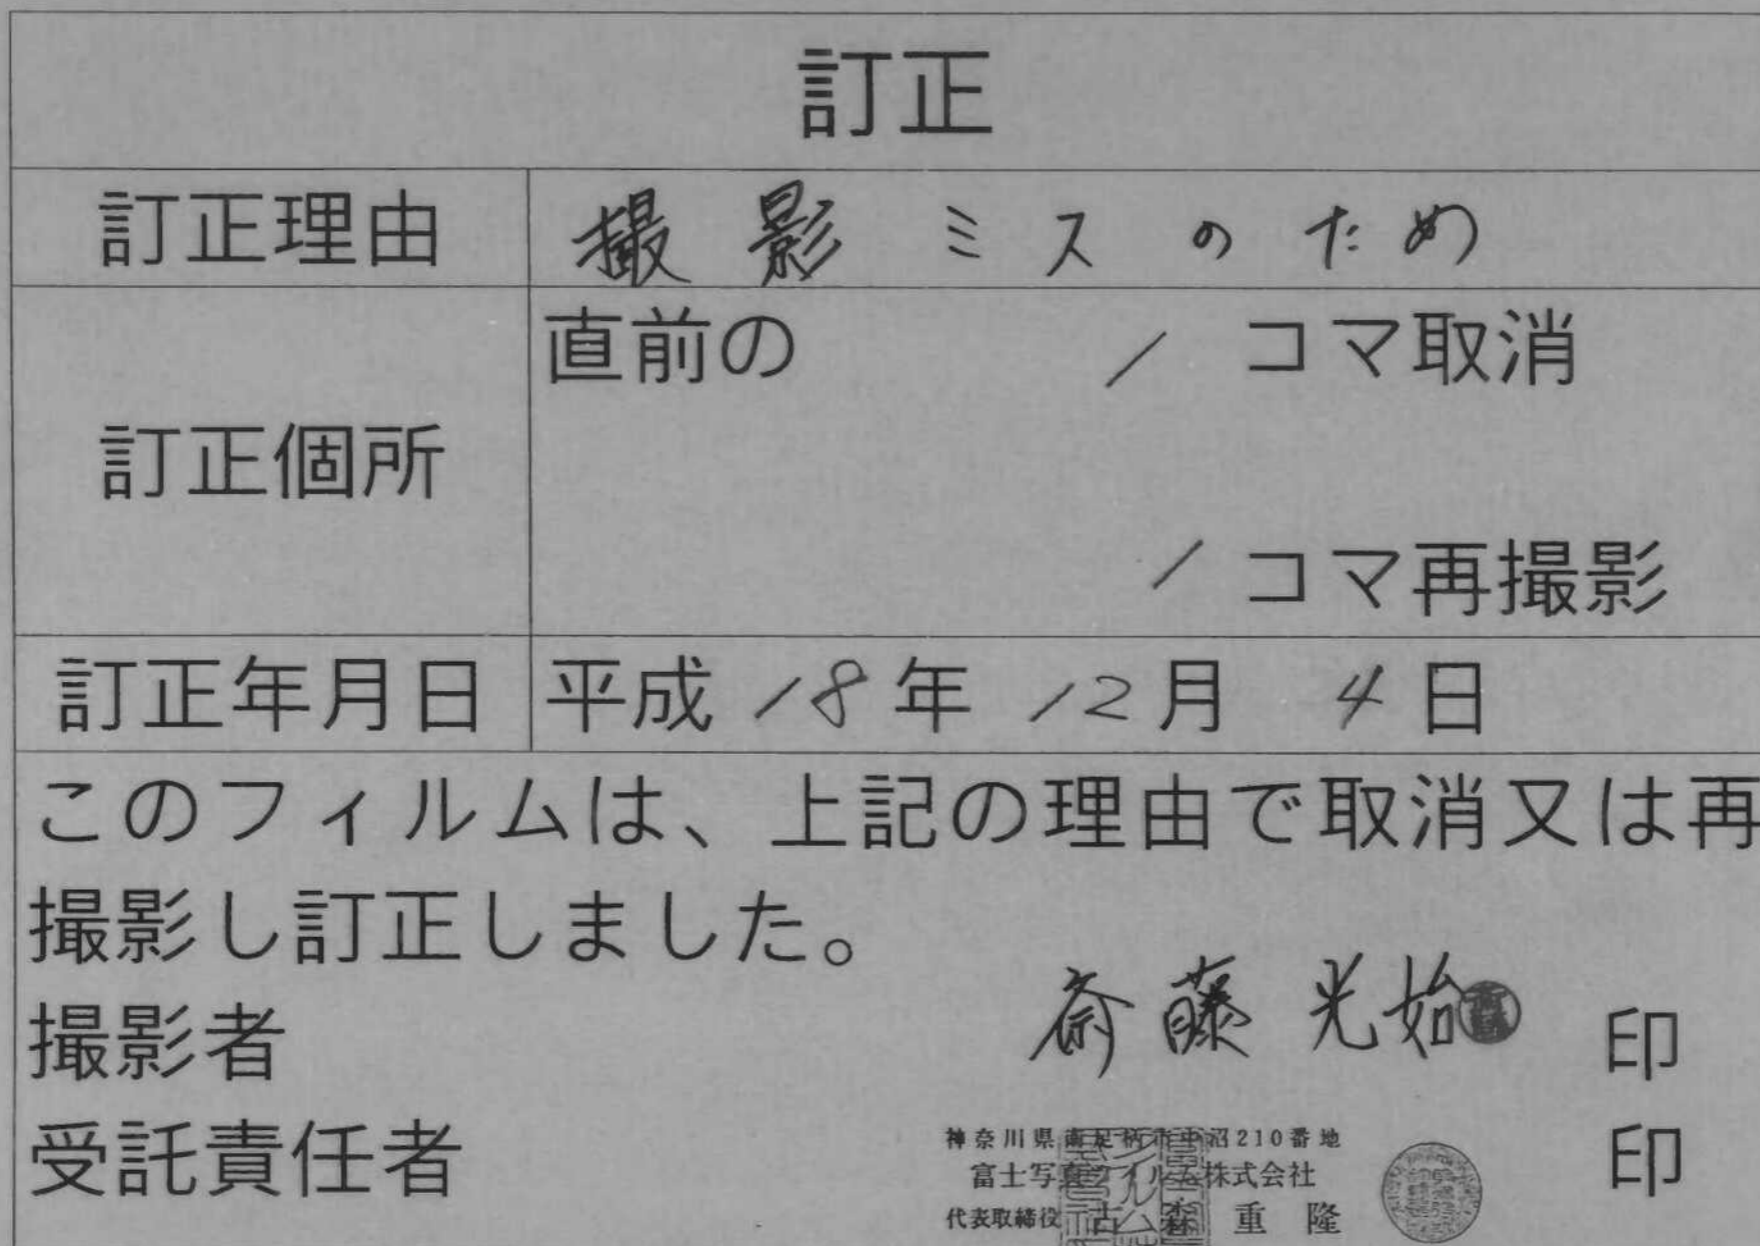 訂正
訂正理由 撮影ミスのため
訂正個所 直前の 1 コマ取消
1 コマ再撮影
訂正年月日 平成 18 年 12 月 4 日
このフィルムは、上記の理由で取消又は再
撮影し訂正しました。
撮影者 斎藤 光始 印
受託責任者 印
神奈川県南足柄市中沼210番地
富士写真フイルム株式会社
代表取締役 古森 重隆